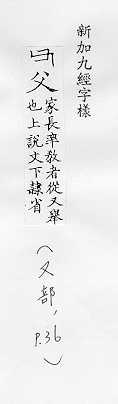 新加九經字樣
父
家長率敎者從又舉
也上說文下隸省
(又部, P.36)